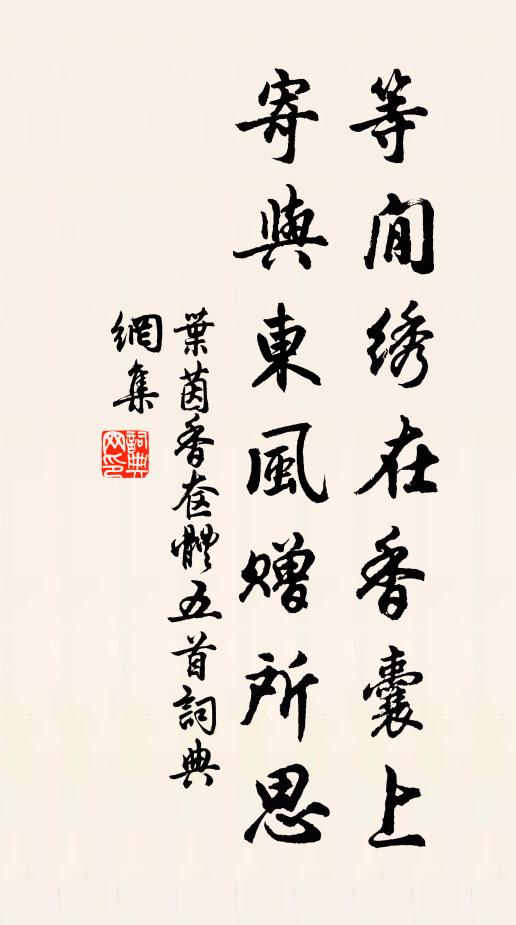 等閒绣在香囊上
寄與東風赠所思
葉茵香奩體五首詞典
網集
詞典
网印